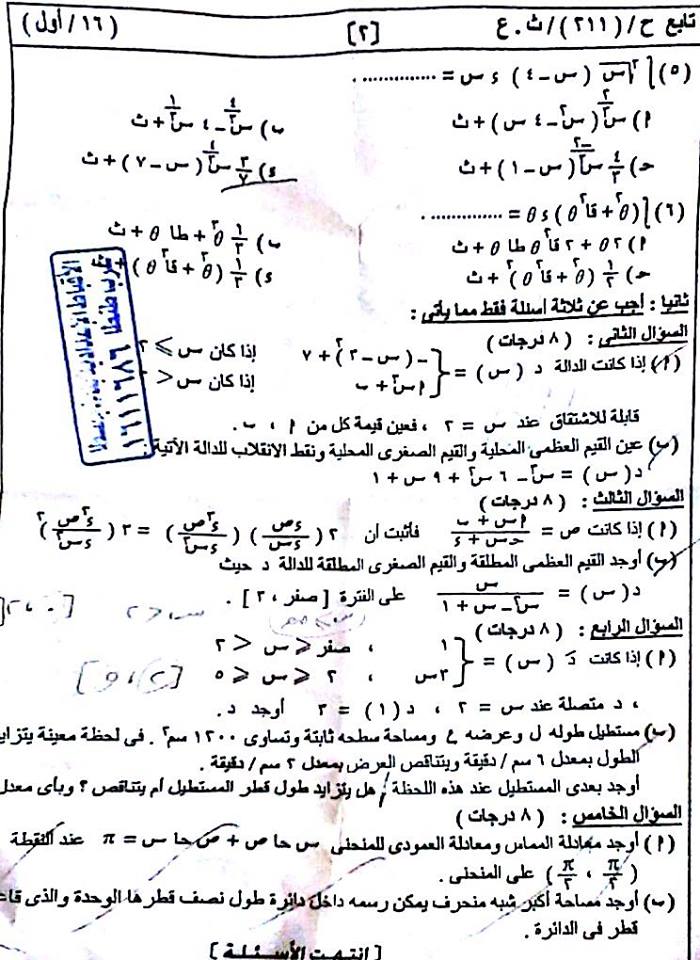 تابع ح/(٢١١)/ث.ع [٢] (١٦/أول)
(٥) ∫ ∛س (س − ٤) ء س = ..............
(١) س^(٢/٣) (س٢ − ٤ س) + ث
ب) س^(٤/٣) − ٤ س^(١/٣) + ث
ح) ٤/٣ س^(−٢/٣) (س − ١) + ث
ء) ٣/٧ س^(٤/٣) (س − ٧) + ث
(٦) ∫ (θ٢ + قا٢ θ) ء θ = ..............
(١) ٢ θ + ٢ قا٢ θ طا θ + ث
ب) ١/٣ θ٣ + طا θ + ث
ح) ١/٣ (θ٢ + قا٢ θ)٢ + ث
ء) ١/٣ (θ٣ + قا٣ θ) + ث
ثانيا : أجب عن ثلاثة أسئلة فقط مما يأتى :
السؤال الثانى : ( ٨ درجات )
(١) إذا كانت الدالة د (س) = { − (س − ٣)٢ + ٧ إذا كان س ≤ ٢
١ س٢ + ب إذا كان س >
قابلة للاشتقاق عند س = ٢ ، فعين قيمة كل من ١ ، ب .
(ب) عين القيم العظمى المحلية والقيم الصغرى المحلية ونقط الانقلاب للدالة الآتية :
د (س) = س٣ − ٦ س٢ + ٩ س + ١
السؤال الثالث : ( ٨ درجات )
(١) إذا كانت ص = (١ س + ب)/(ح س + ء) فأثبت أن ٢ (ء ص/ء س) (ء٣ص/ء س٣) = ٣ (ء٢ص/ء س٢)٢
(ب) أوجد القيم العظمى المطلقة والقيم الصغرى المطلقة للدالة د حيث
د (س) = س/(س٢ − س + ١) على الفترة [ صفر ، ٢ ] .
السؤال الرابع : ( ٨ درجات )
(١) إذا كانت دَ (س) = { ١ ، صفر ≤ س < ٢
٣س ، ٢ ≤ س ≤ ٥
، د متصلة عند س = ٢ ، د (١) = ٣ أوجد د .
(ب) مستطيل طوله ل وعرضه ع ومساحة سطحه ثابتة وتساوى ١٢٠٠ سم٢ . فى لحظة معينة يتزايد
الطول بمعدل ٦ سم / دقيقة ويتناقص العرض بمعدل ٢ سم / دقيقة .
أوجد بعدى المستطيل عند هذه اللحظة ، هل يتزايد طول قطر المستطيل أم يتناقص ؟ وبأى معدل
السؤال الخامس : ( ٨ درجات )
(١) أوجد معادلة المماس ومعادلة العمودى للمنحنى س حا ص + ص حا س = π عند النقطة
(π/٢ ، π/٢) على المنحنى .
(ب) أوجد مساحة أكبر شبه منحرف يمكن رسمه داخل دائرة طول نصف قطرها الوحدة والذى
قطر فى الدائرة .
[ انتهت الأسئلة ]